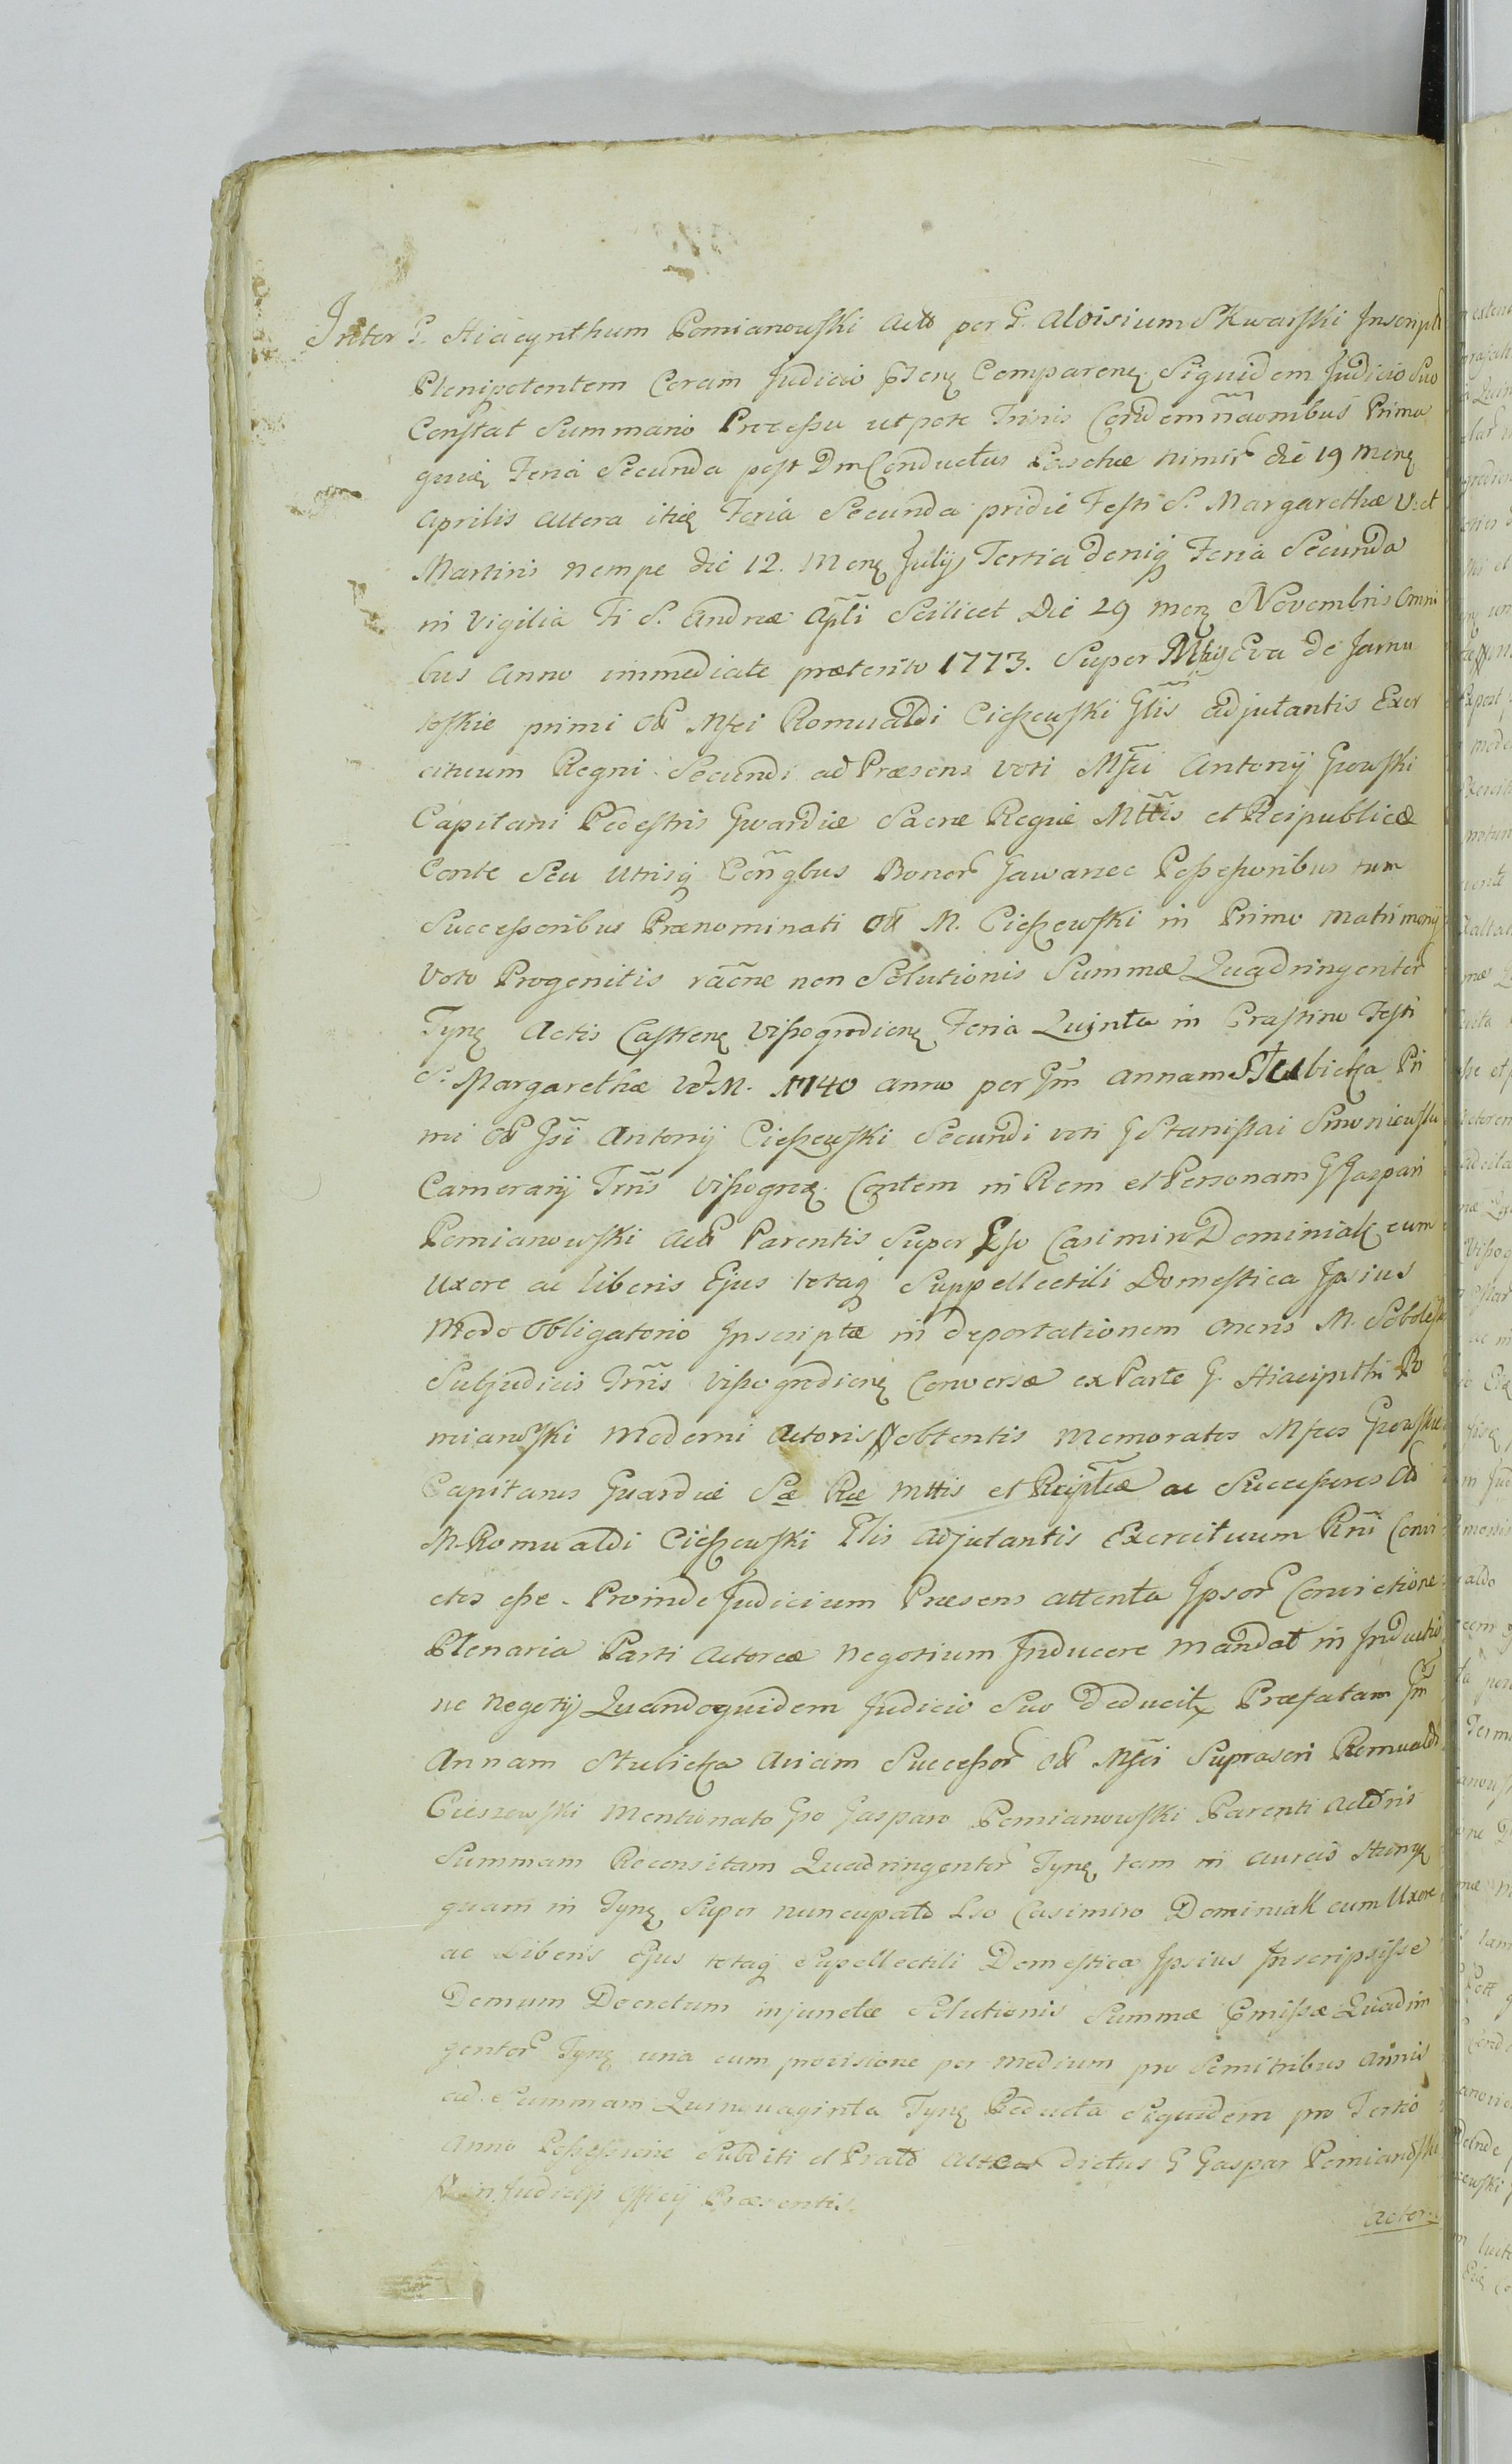 Inter G. Hiacynthum Pomianowski Acto per G. Aloisium Skwarski Inscript
Plenipotentem Coram Judicio Psenz Comparenz Siquidem Judicio Suo
Constat Summario Processu utpote Trinis Condemnãonibus Prima
quiaz Feria Secunda post Dm Conductus Paschæ nimir die 19 Menz
Aprilis Altera itaz Feria Secunda pridie Festi S. Margarethæ V. et
Martiris nempe die 12. Menz July Tertia deniq Feria Secunda
in Vigilia Fi S. Andreæ Apli Scilicet Die 29 menz Novembris Omni
bus Anno immediate præterito 1773. Super Mfis Eva de Jarnu
toskie primi olt Mfci Romualdi Cieszewski Glis Adjutantis Exer
cituum Regni Secundi ad Præsens voti Mfci Antonij Gzowski
Capitani Pedestris Gwardiæ Sacræ Regiæ Mttis et Reipublicæ
Conte Seu Utrisq Conqbus Bonor Gawarzec Possessoribus tum
Successoribus Prænominati olt M. Cieszewski in Primo matrimonij
Voto Progenitis rãone non Solutionis Summæ Quadringentor
Tynz Actis Castrenz Vissogrodienz Feria Quinta in Crastino Festi
S. Margarethæ V et M. 1740 anno per Gm Annam Stubicka Pri
mi olt Gsi Antonij Cieszewski Secundi voti G Stanislai Smoniewski
Camerarij Trris Vissogroz Contem in Rem et Personam G Gaspari
Pomianowski Act Parentis Super Lso Casimiro Dominiak cum
Uxore ac liberis Ejus totaq Suppellectili Domestica Ipsius
Modo Obligatorio Inscriptæ in deportationem oneris M. Sobolesk
Subjudicis Trris Vissogrodienz Conversæ ex Parte G. Hiacinthi Po
mianowski Moderni Actoris obtentis Memoratos Mfcos Gzowskie
Capitanos Guardiæ Sæ Ræ Mttis et Reiplicæ ac Successores olt
M. Romualdi Cieszewski Glis Adjutantis Exercituum Rni Convi
ctos esse. Proinde Judicium Præsens attenta Ipsor Convictione
Plenaria Parti Actoreæ Negotium Inducere mandat in Inductio
ne Negotij Quandoquidem Judicio Suo deducit Præfatam Gm
Annam Stubicka Aviam Successor olt Mfci Suprascri Romualdi
Cieszewski Mentionato Gso Gasparo Pomianowski Parenti Actoris
Summam Recensitam Quadringentor Tynz tam in aureis Hunz
quam in Tynz Super nuncupato Lso Casimiro Dominiak cum Uxore
ac Liberis Ejus totaq Supellectili Domestica Ipsius Inscripsisse
Demum Decretum injunctæ Solutionis Summæ Emissæ Quadrin
gentor Tynz una cum provisione per Medium pro Semitribus Annis
ad Summam Quinquaginta Tynz Deducta Siquidem pro Tertio
Anno Possessione Subditi et Prato dictus G Gaspar Pomianowski
in Judicijs Officij Præsentis
Actor